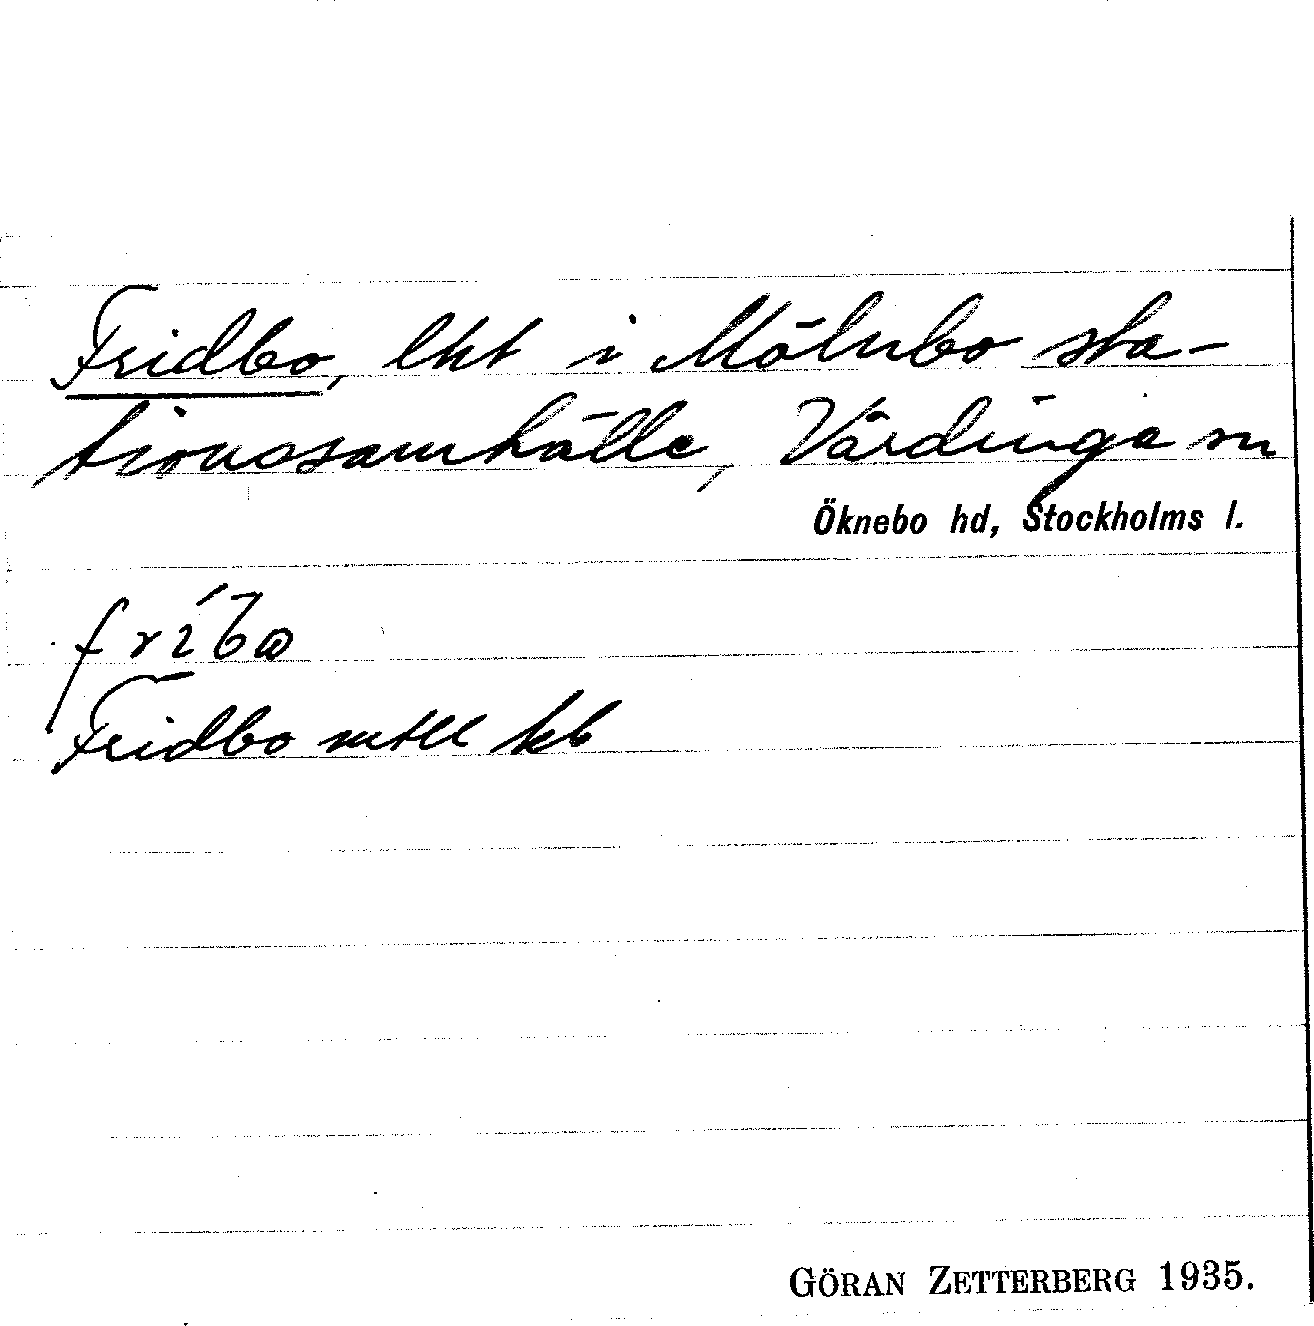 Fridbo, lht i Mölnbo sta-
tionssamhälle, Vårdinga sn
Öknebo hd, Stockholms l.
Fridbo
GÖRAN ZETTERBERG 1935.